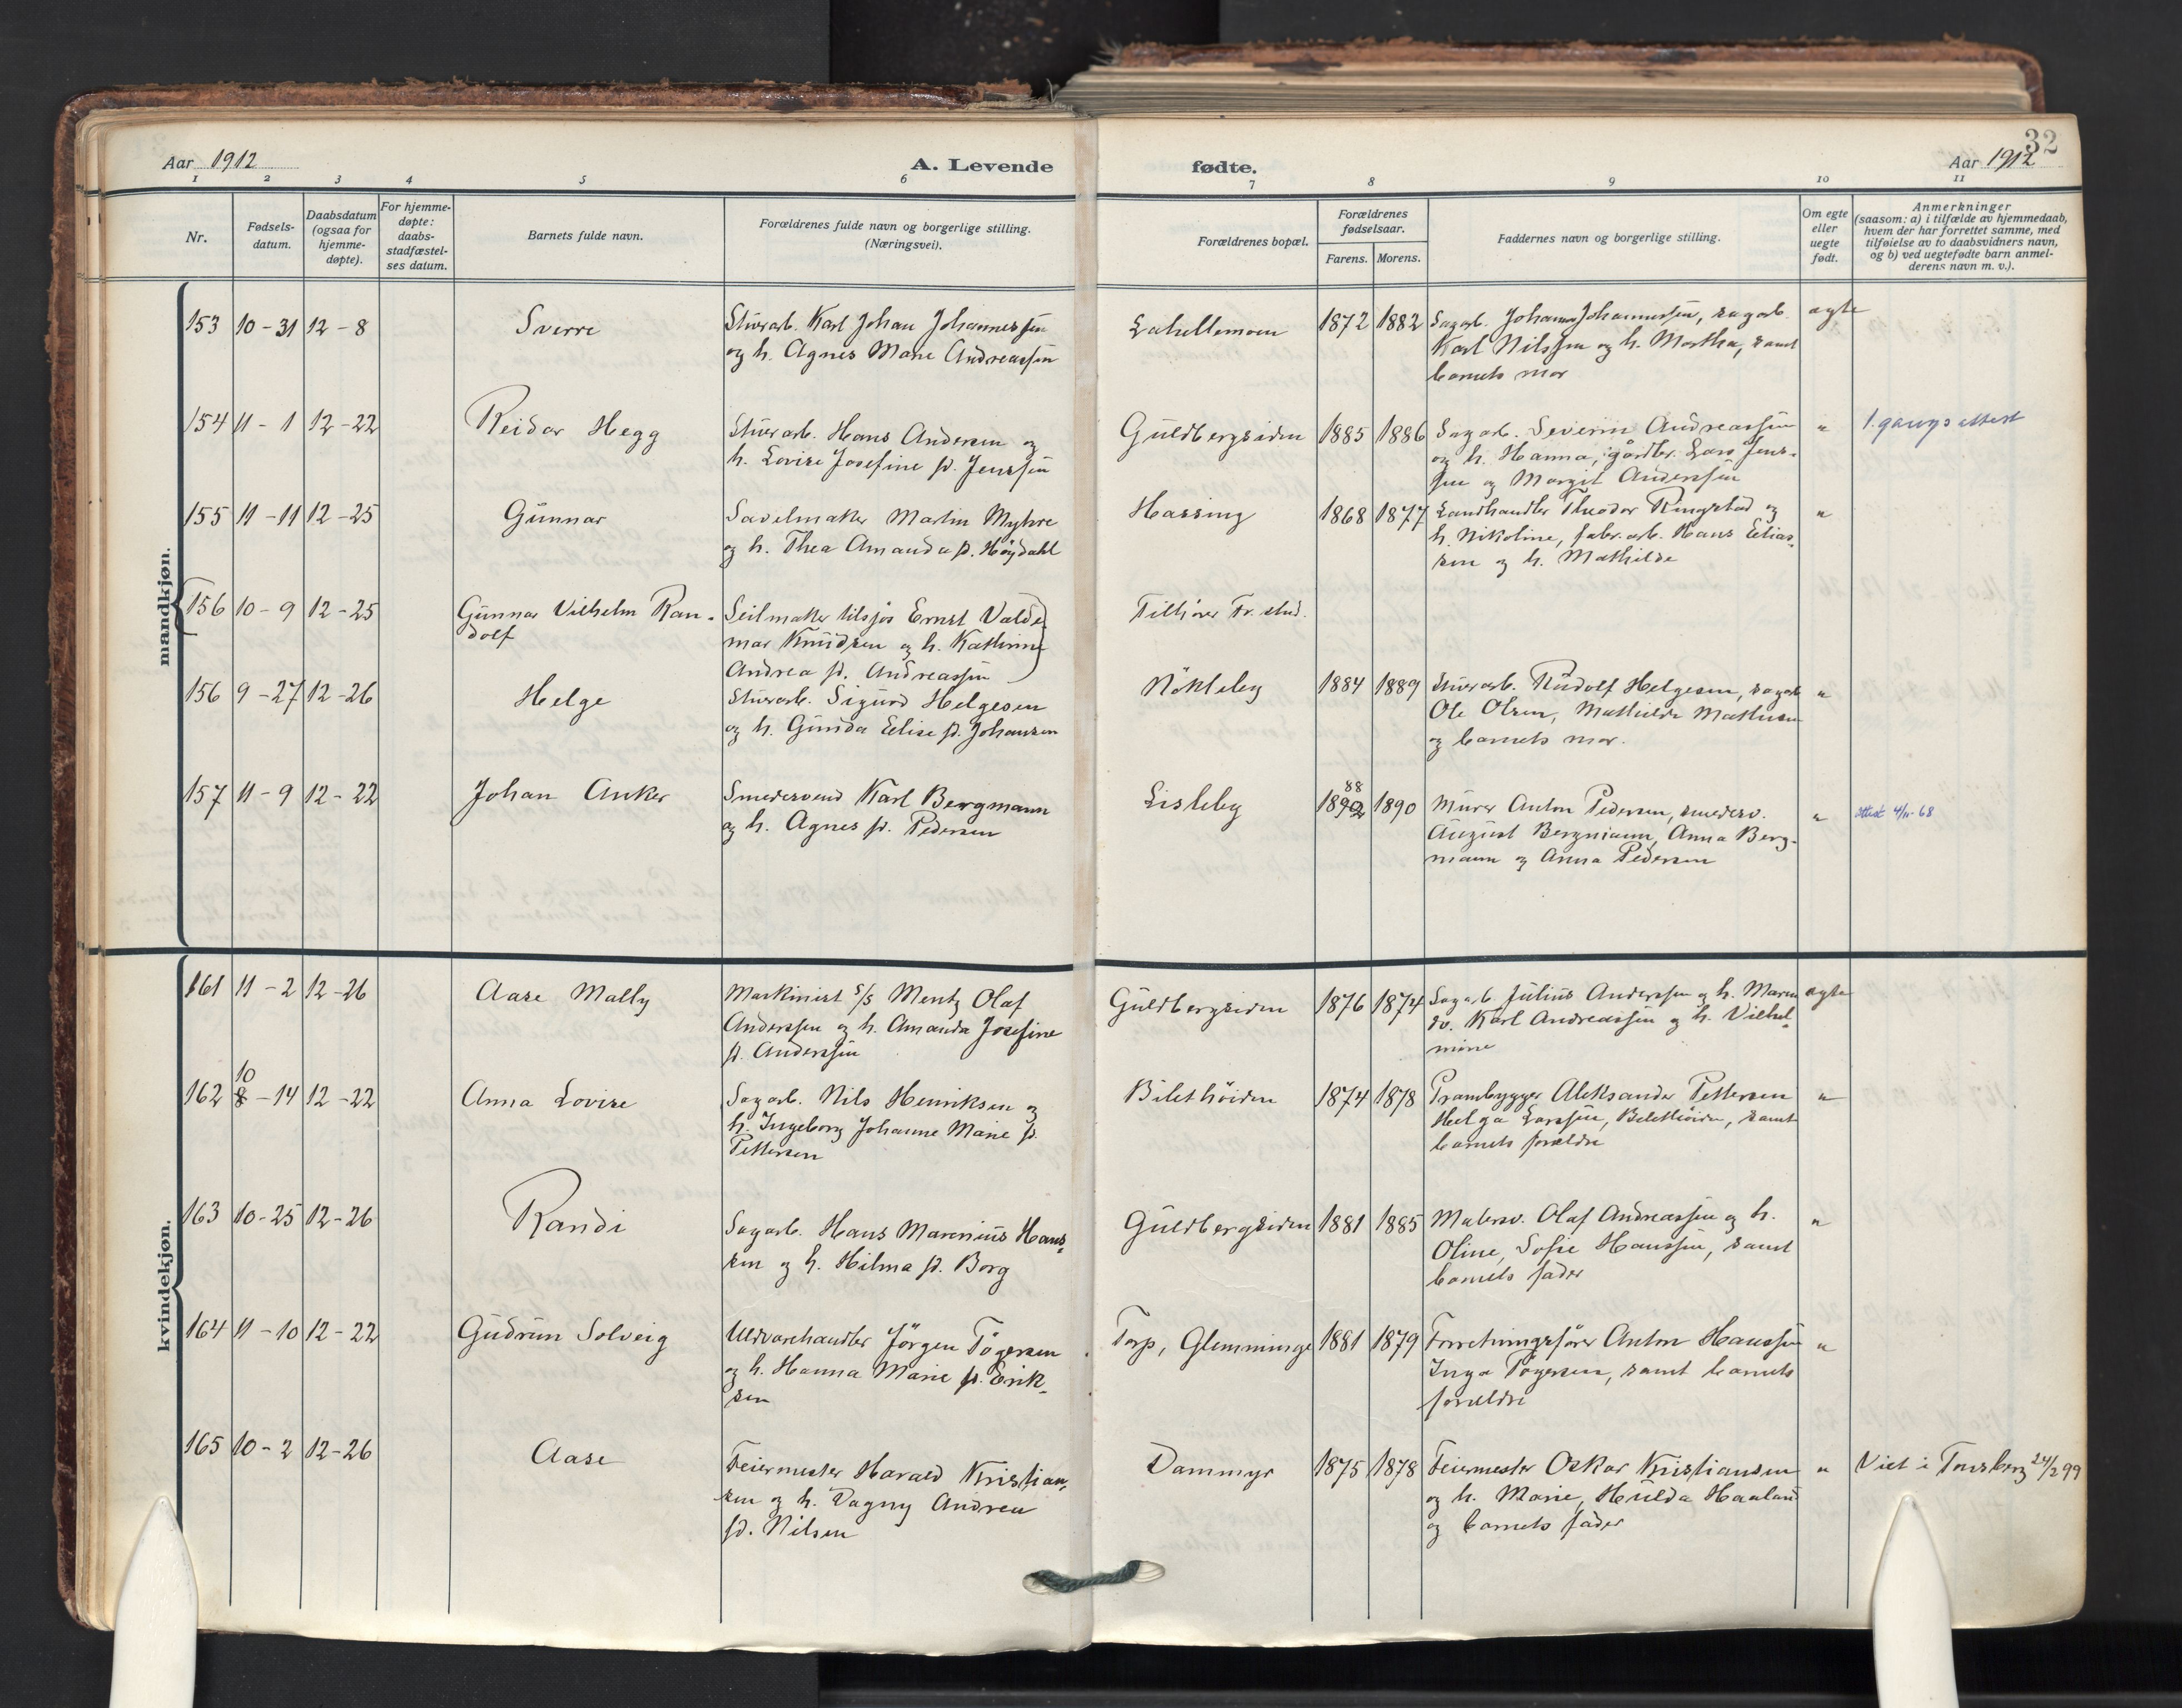 32
Aar 1912
A. Levende
fødte.
Aar 1912
1 2 3 4 5 6 7 8 9 10 11
Nr.
Fødsels-
datum.
Daabsdatum
(ogsaa for
hjemme-
døpte).
For hjemme-
døpte:
daabs-
stadfæstel-
ses datum.
Barnets fulde navn.
Forældrenes fulde navn og borgerlige stilling.
(Næringsvei).
Forældrenes bopæl.
Forældrenes
fødselsaar.
Farens. Morens.
Faddernes navn og borgerlige stilling.
Om egte
eller
uegte
født.
Anmerkninger
(saasom: a) i tilfælde av hjemmedaab,
hvem der har forrettet samme, med
tilføielse av to daabsvidners navn,
og b) ved uegtefødte barn anmel-
derens navn m. v.).
mandkjøn.
153 10-31 12-8
Sverre
Stuerarb. Karl Johan Johannessen
og h. Agnes Marie Andreassen
Lahellemoen
1872 1882
Sagarb. Johannes Johannessen, sagarb.
Karl Nilssen og h. Martha, samt
barnets mor
ægte
154 11-1 12-22
Reidar Hegg
Stuerarb. Hans Andersen og
h. Lovise Josefine f. Jenssen
Guldbergsiden
1885 1886
Sagarb. Severin Andreassen
og h. Hanna, gårdbr. Lars Jens-
sen og Margit Anderssen
"
1. gangs attest
155 11-11 12-25
Gunnar
Sadelmaker Martin Myhre
og h. Thea Amanda f. Höydahl
Hassing
1868 1877
Landhandler Theodor Ringstad og
h. Nikoline, fabr.arb. Hans Elias-
sen og h. Mathilde
"
156 10-9 12-25
Gunnar Vilhelm Ran-
dolf
Seilmaker tilsjøs Ernst Valde-
mar Knudsen og h. Kathrine
Andrea f. Andreassen
Tilhører Fr.stad.
156 9-27 12-26
Helge
Stuerarb. Sigurd Helgesen
og h. Gunda Elise f. Johansen
Nökleby
1884 1889
Stuerarb. Rudolf Helgesen, sagarb.
Ole Olsen, Mathilde Mathisen
og barnets mor.
"
157 11-9 12-22
Johan Anker
Smedesvend Karl Bergmann
og h. Agnes f. Pedersen
Lisleby
88
1892 1890
Murer Anton Pedersen, smedesv.
August Bergmann, Anna Berg-
mann og Anna Pedersen
"
attest 4/11-68
kvindekjøn.
161 11-2 12-26
Aase Mally
Maskinist s/s Mentz Olaf
Anderssen og h. Amanda Josefine
f. Anderssen
Guldbergsiden
1876 1874
Sagarb. Julius Anderssen og h. Maren
sv. Karl Andreassen og h. Vilhel-
mine
ægte
10
162 8-14 12-22
Anna Lovise
Sagarb. Nils Henriksen og
h. Ingeborg Johanne Marie f.
Pettersen
Bilethöiden
1874 1878
Prambygger Aleksander Pettersen
Helga Larssen, Bilethöiden, samt
barnets forældre
"
163 10-25 12-26
Randi
Sagarb. Hans Marenius Hans-
sen og h. Hilma f. Borg
Guldbergsiden
1881 1885
Malersv. Olaf Andreassen og h.
Oline, Sofie Hanssen, samt
barnets fader
"
164 11-10 12-22
Gudrun Solveig
Uldvarehandler Jörgen Tögersen
og h. Hanna Marie f. Erik-
sen
Torp, Glemminge
1881 1879
Forretningsfører Anton Hanssen
Inga Tögersen, samt barnets
forældre
"
165 10-2 12-26
Aase
Feiermester Harald Kristian-
sen og h. Dagny Andrea
fd. Nilsen
Dammyr
1875 1878
Feiermester Oskar Kristiansen
og h. Marie, Hulda Haaland
og barnets fader
"
Viet i Tønsberg 24/2 99